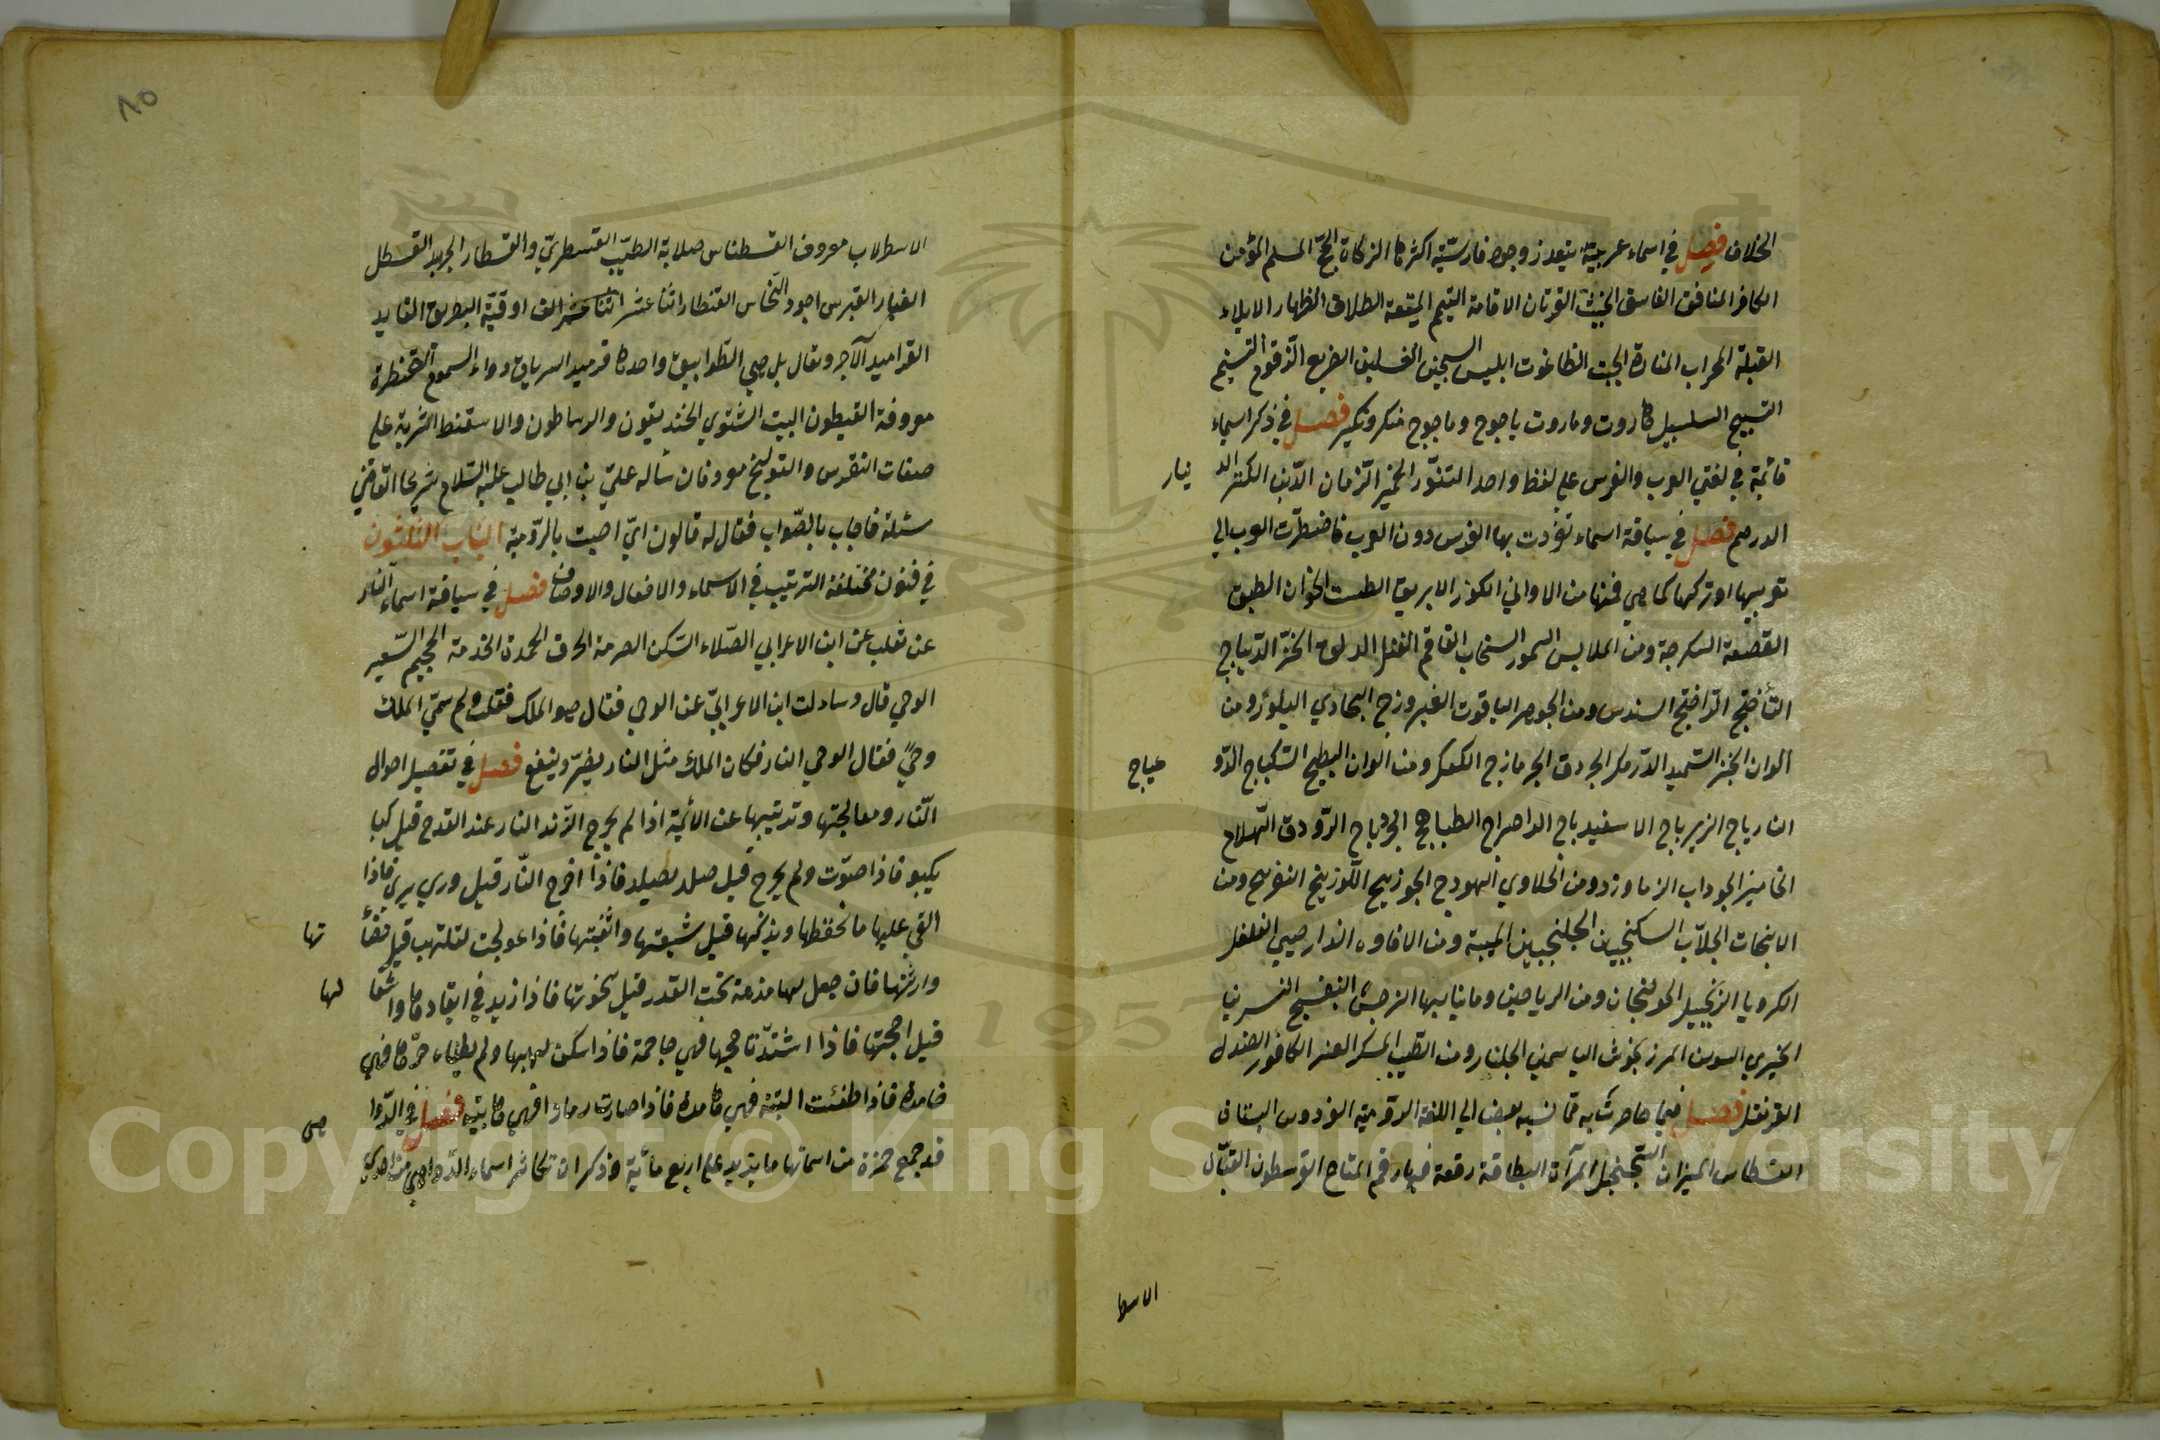 الخلاف فصل في اسماء عربية يتعذر وجود فارسية اكثرها الزكاة الحج المسلم المؤمن
الكافر المنافق الفاسق الخبيث القرآن الاقامة التيمم المتعة الطلاق الظهار الايلاء
القبلة المحراب المنارة الجبت الطاغوت ابليس السجين الغسلين الضريع الزقوم التسنيم
التسبيح السلسبيل هاروت وماروت ياجوج وماجوج منكر ونكير فصل في ذكر اسماء
قائمة في لغتي العرب والفرس على لفظ واحد التنور الخمير الزمان الدين الكنز الد
ينار
الدرهم فصل في سياقة اسماء تفردت بها الفرس دون العرب فاضطرت العرب الى
تعريبها او تركها كما هي فمنها من الاواني الكوز الابريق الطست الخوان الطبق
القصعة السكرجة ومن الملابس السمور السنجاب القاقم الفنك الدلق الخز الديباج
التاختج الراختج السندس ومن الجوهر الياقوت الفيروزج البجادي البلور ومن
الوان الخبز السميد الدرمك الجردق الجرمازج الكعك ومن الوان الطبيخ السكباج الدو
عباج
النارباج الزيرباج الاسفيدباج الداجراج الطباهج الجردباج الرودق الهلام
الخاميز الجوداب الزماورد ومن الحلاوي الهودج الجوزينج اللوزينج النفرينج ومن
الانبجات الجلاب السكنجبين الجلنجبين الميبة ومن الافاوه الدارصيني الفلفل
الكرويا الزنجبيل الخولنجان ومن الرياحين وما يناسبها النرجس البنفسج النسرين
الخيري السوسن المرزنجوش الياسمين الجلنار ومن الطيب المسك العنبر الكافور الصندل
القرنفل فصل فيما حاضرت به مما نسبه بعض الى اللغة الرومية الفردوس البستان
القسطاس الميزان السجنجل المرآة البطاقة رقعة فيها رقم المتاع القرسطون القبان
الاسط
٨٥
الاسطرلاب معروف القسطناس صلابة الطيب القسطري والقسطار الجهبذ القسطل
الغبار القبرس اجود النحاس القنطار اثنا عشر الف اوقية البطريق القايد
القراميد الآجر ويقال بل هي الطوابيق واحدها قرميد الترياق دواء السموم القنطرة
معروفة القيطون البيت الشتوي الخنديقون والرساطون والاسفنط اشربة على
صفات النقرس والقولنج معروفان سأله علي بن ابي طالب عليه السلام شريحا القاضي
مسئلة فاجاب بالصواب فقال له قالون اي اصبت بالرومية الباب الثلثون
في فنون مختلفة الترتيب في الاسماء والافعال والاوصاف فصل في سياقة اسماء النار
عن ثعلب عن ابن الاعرابي الصلاء السكن الضرمة الحرق الحمدة الخدمة الجحيم السعير
الوحي قال وسالت ابن الاعرابي عن الوحي فقال هو الملك فقلت ولم سمي الملك
وحيً فقال الوحي النار فكان الملك مثل النار يضر وينفع فصل في تفصيل احوال
النار ومعالجتها وترتيبها عن الائمة اذا لم يخرج الزند النار عند القدح قيل كبا
يكبو فاذا صوت ولم يخرج قيل صلد يصلد فاذا اخرج النار قيل وري يري فاذا
القي عليها ما يحفظها ويذكيها قيل شيعتها واثقبتها فاذا عولجت لتلتهب قيل حضأ
تها
وارثتها فان جعل لها مذهب تحت القدر قيل سخوتها فاذا زيد في ايقادها واشعا
لها
قيل اججتها فاذا اشتد تاججها فهي جاحمة فاذا سكن لهيبها ولم يطفأ حرها فهي
خامدة فاذا طفئت البتة فهي هامدة فاذا صارت رمادا فهي هابية فصل في الدوا
هي
قد جمع حمزة من اسمائها ما يزيد على اربع مائة وذكر ان تكاثر اسماء الدواهي من احدى